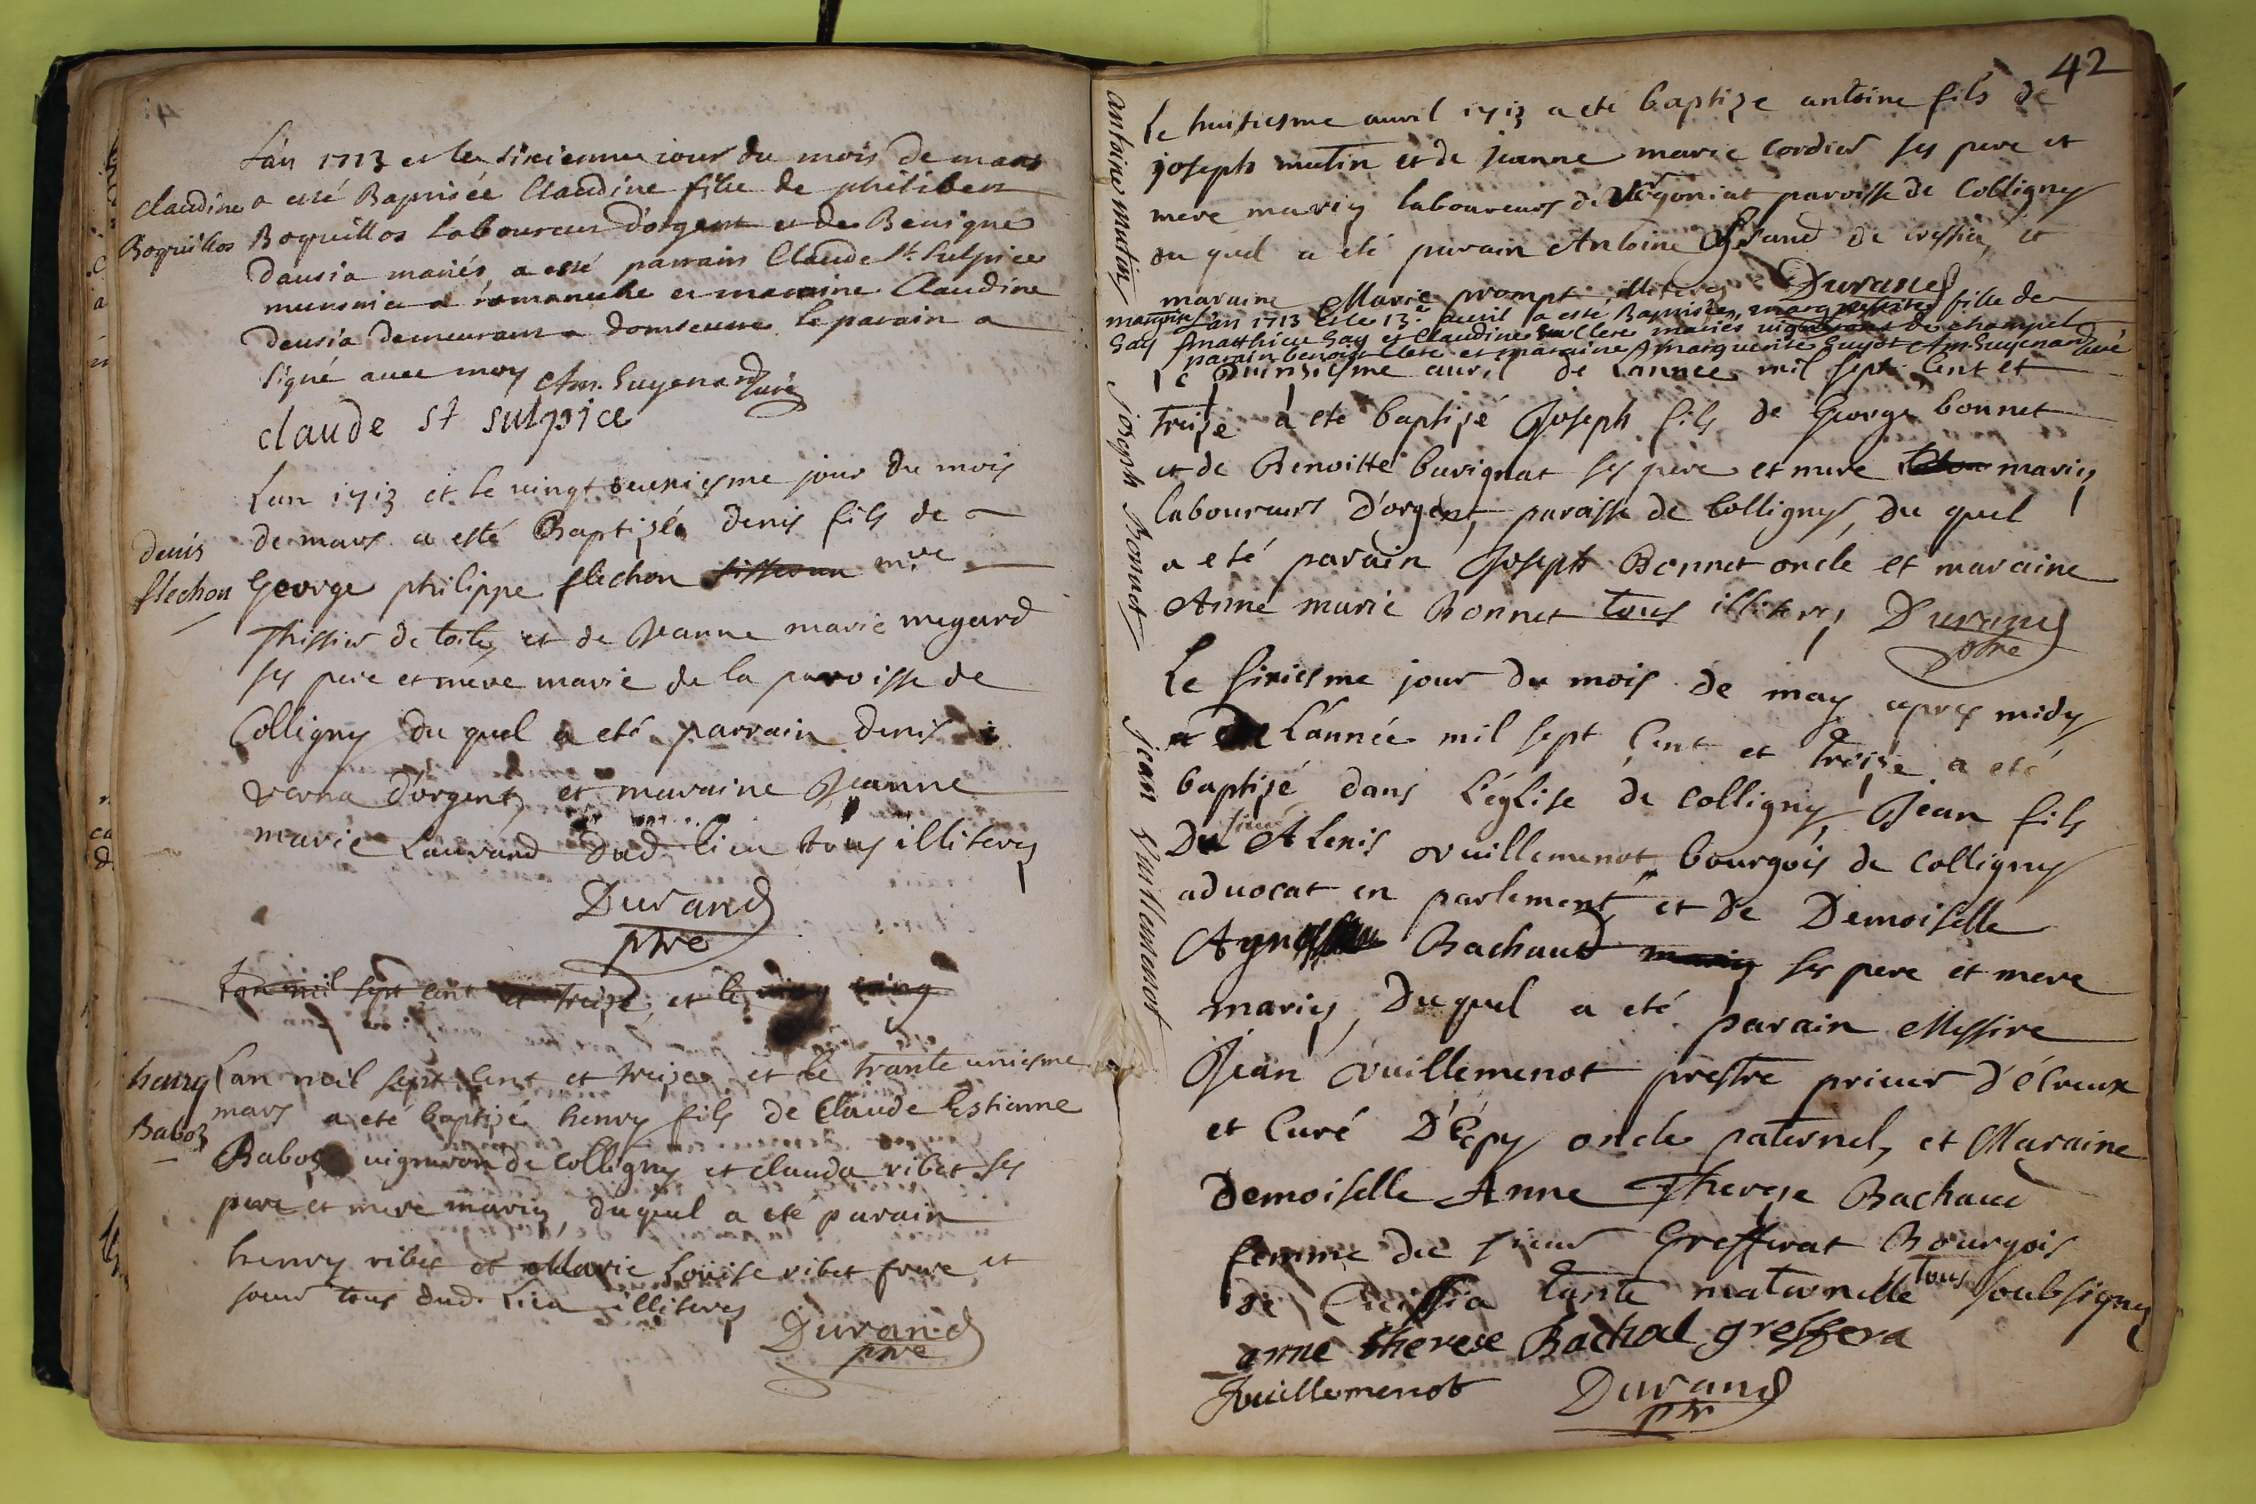 L'an 1713 et le sixieme iour du mois de mars
Claudine
a esté Baptisée Claudine fille de philibert
Boquillos
Boquillos laboureur d'orgent et de Benigne
Dausia mariés, a esté parrain Claude St Sulpice
musnier a romaneche et maraine Claudine
Deusia demeurant a domseure le parain a
signé avec moy Am. Guyenard Curé
claude st sulpice
Lan 1713 et le vingt deuxiesme jour du mois
de mars a esté Baptizée denis fils de
denis
flechon
George philippe flechon mre
Thissier de toile, et de Jeanne marie megard
ses pere et mere marié de la paroisse de
Colligny du quel a eté parrain denis
verna d'orgent, et maraine Jeanne
marie Laurand dud. lieu tous illiteres
Durand
ptre
Lan mil sept cent et treize, et le vingt
henry
Baboz
Lan mil sept cent et treize et le trante uniesme
mars a eté baptizé henry fils de Claude Estienne
Baboz vigneron de Colligny et clauda ribet ses
pere et mere mariez, duquel a eté parain
henry ribet et Marie Louise ribet frere et
soeur tous dud. Lieu illiteres
Durand
ptre
42
antoine mutin
Le huitiesme avvril 1713 a eté baptize antoine fils de
joseph mutin et de jeanne marie cordier ses pere et
mere mariez laboureurs de paroisse de Colligny
du quel a eté parain Antoine de cressia, et
maraine Marie prompt illiteres Durand
marguerite
Gay
l'an 1713 et le 13e avril a esté Baptisée marguerite fille de
matthieu Gay et Claudine Clere mariés vignerons de champel
parain benoist Clere et maraine marguerite Guyot Am. Guyenard Curé
joseph Bonnet
Le quinziesme avril de Lannée mil sept Cent et
treize a eté baptizé Joseph fils de George bonnet
et de Benoitte buvignat ses pere et mere mariez
laboureurs D'orgent, paroisse de Colligny, du quel
a eté parain Joseph Bonnet oncle et maraine
Anne marie Bonnet tous illiteres Durand
ptre
jean Vuillemenot
Le sixiesme jour du mois de may apres midy
de L'année mil sept Cent et treize a eté
baptizé dans L'église de Colligny, Jean fils
Du sieur Alexis vuillemenot bourgois de Colligny
advocat en parlement, et de Demoiselle
Agnes Bachaud ses pere et mere
mariez, Duquel a eté parain Messire
Jean Vuillemenot prestre prieur d'écreux
et Curé D'Épy oncle paternel, et Maraine
Demoiselle Anne Thereze Bachaud
femme du sieur Grefferat Bourgois
de Cressia tante maternelle tous soubsignez
anne therese Bachal greffera
Jvuillemenot Durand
ptr